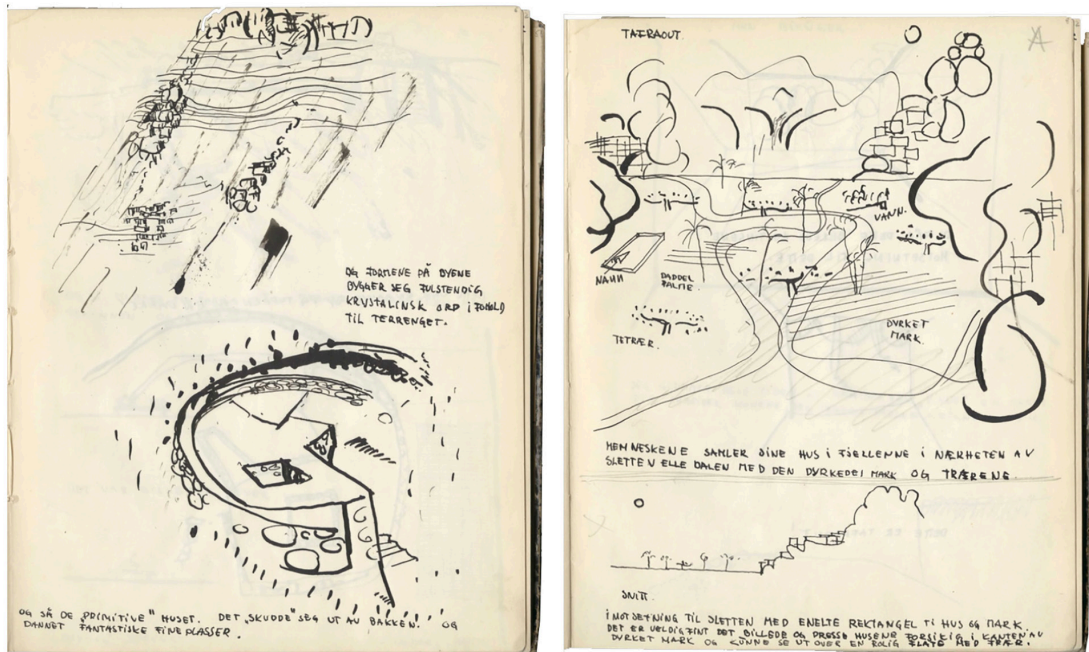 OG FORMENE PÅ BYENE
BYGGER SEG FULSTENDIG
KRYSTALINSK OPP I FOHOLD
TIL TERRENGET.
OG SÅ DE "PRIMITIVE" HUSET. DET "SKUDDE" SEG UT AV BAKKEN. OG
DANNET FANTASTISKE FINE PLASSER.
TAFRAOUT.
A
VANN.
NAHH
DADDEL
PALME
TETRÆR.
DYRKET
MARK.
MENNESKENE SAMLER SINE HUS I FJELLENNE I NÆRHETEN AV
SLETTEN ELLE DALEN MED DEN DYRKEDE MARK OG TRÆRENE.
SNITT.
I MOTSETNING TIL SLETTEN MED ENELTE REKTANGEL TI HUS OG MARK.
DET ER VELDIG FINT DET BILLEDE OG DRESSE HUSENE FORSIKIG I KANTEN AV
DYRKET MARK OG KUNNE SE UT OVER EN ROLIG FLATE MED TRÆR.